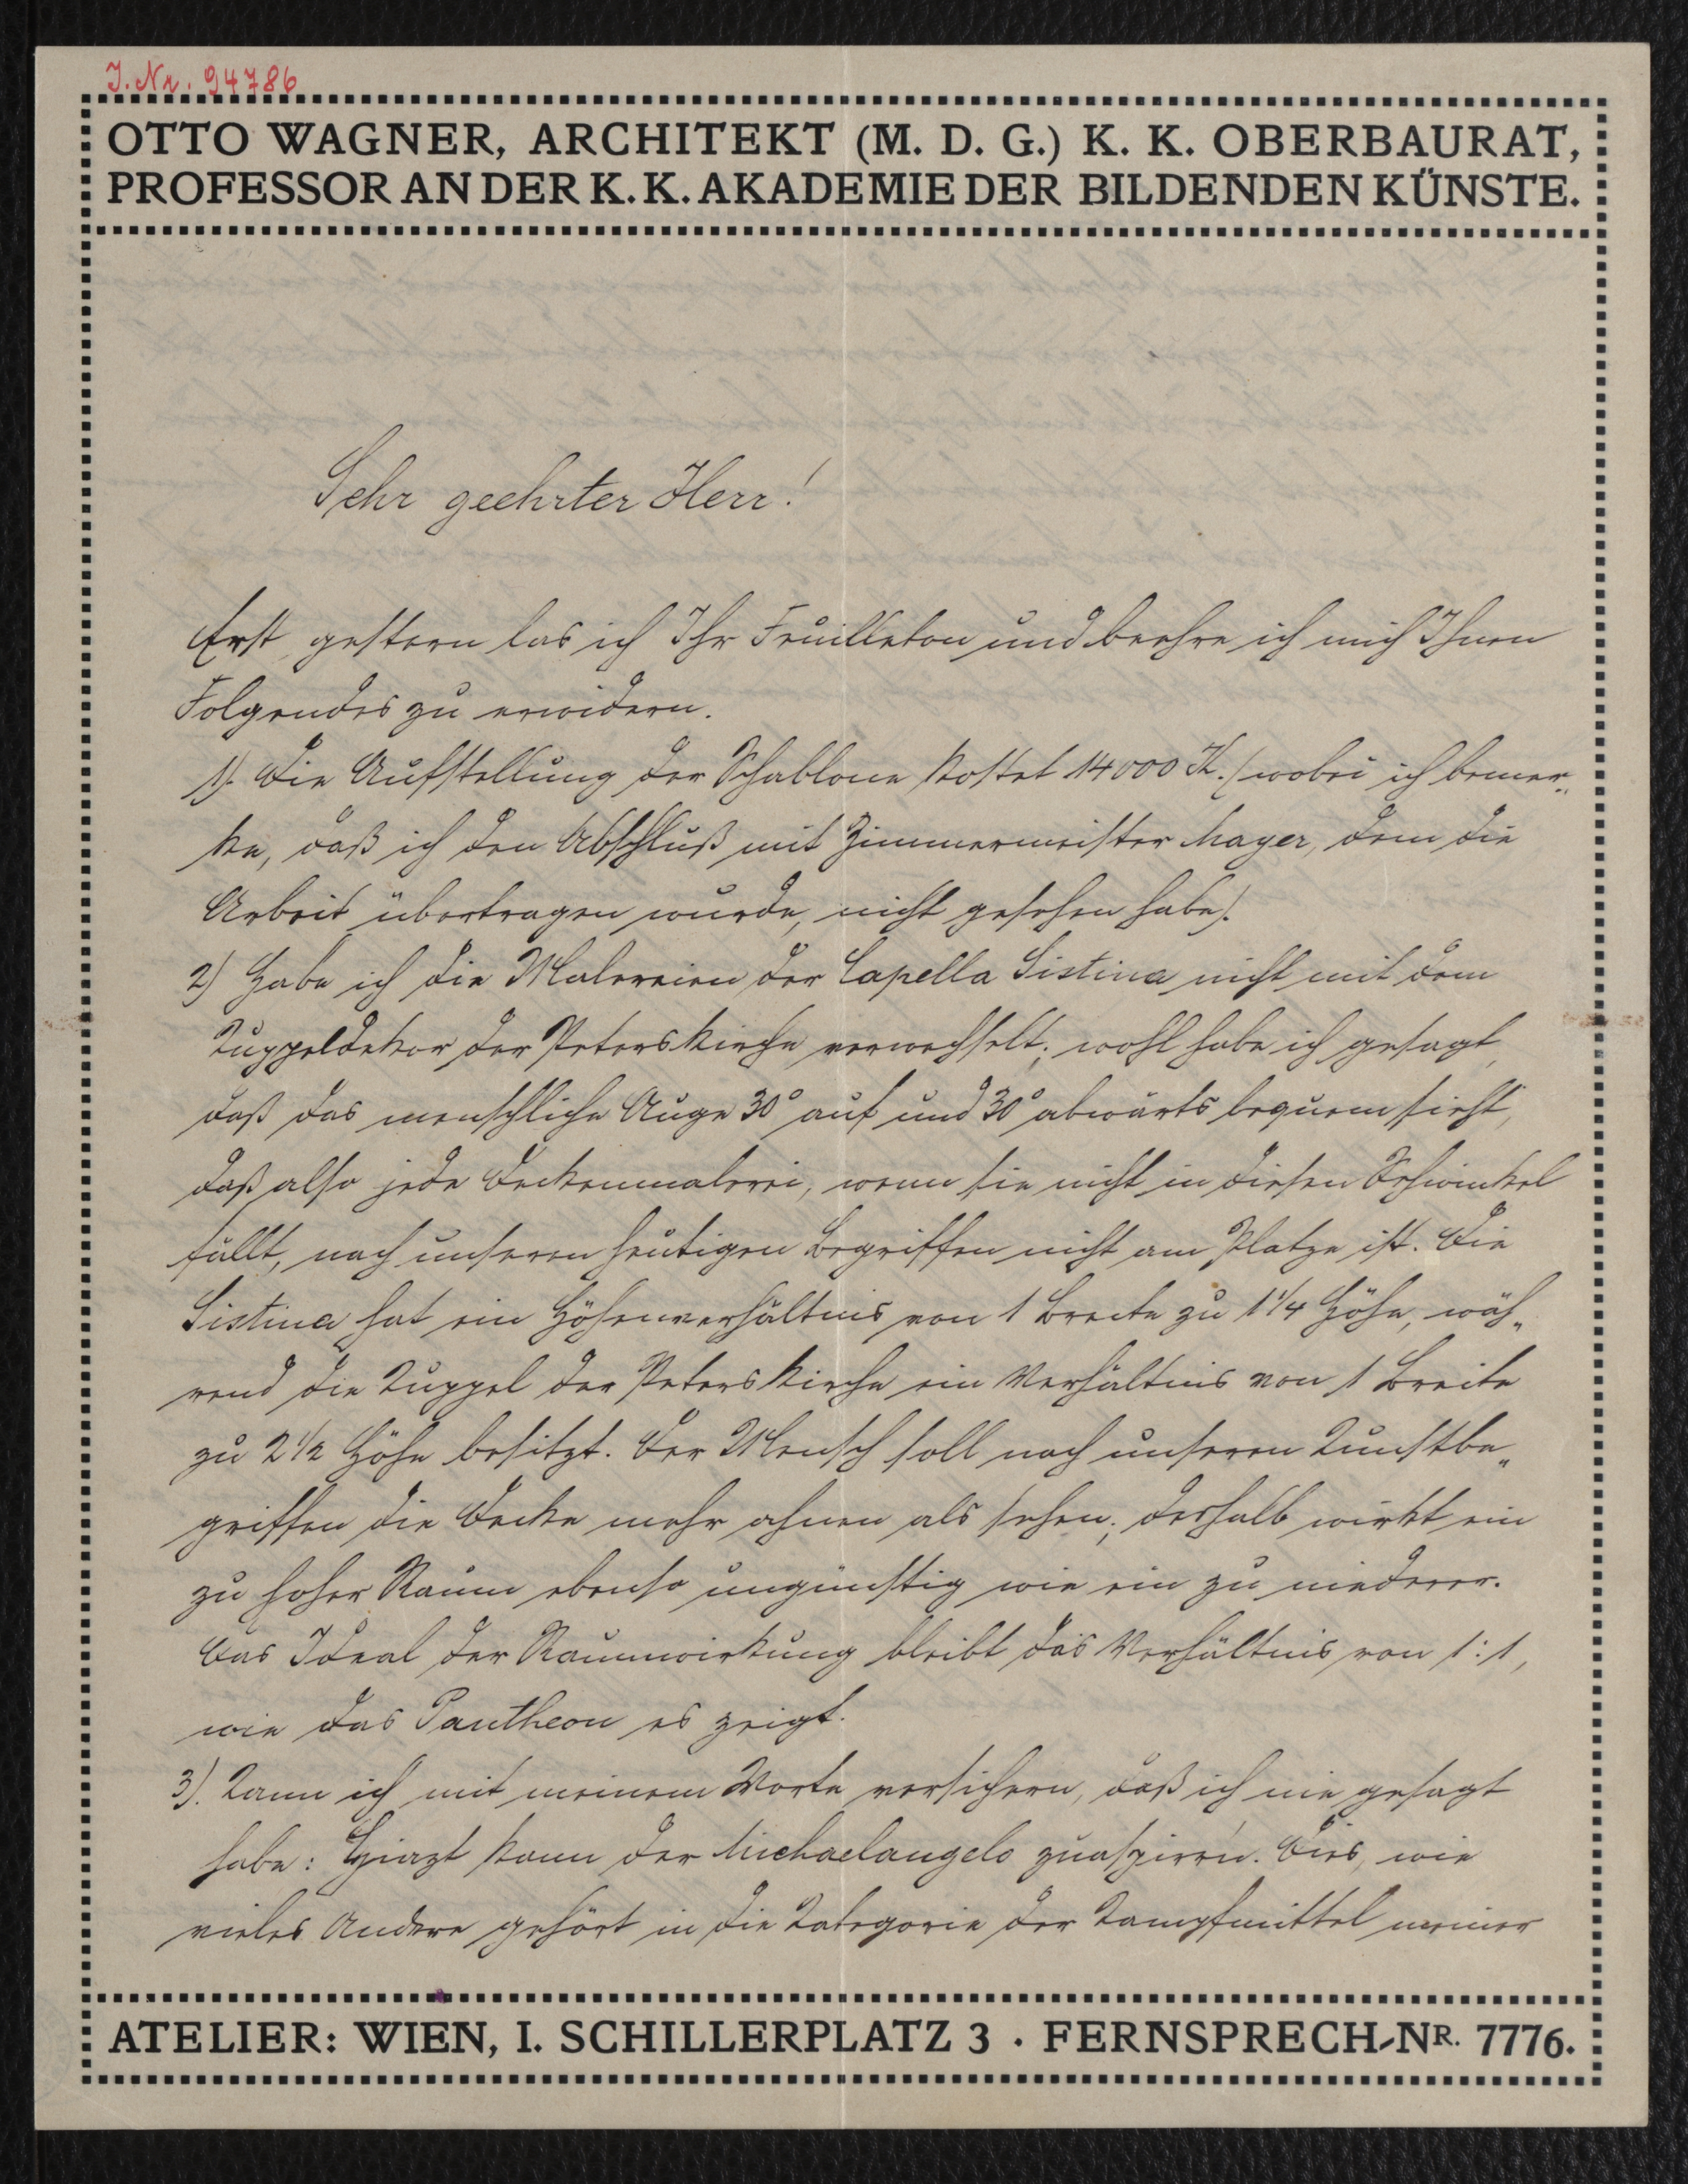 J. Nr. 94786
OTTO WAGNER, ARCHITEKT (M. D. G.) K. K. OBERBAURAT,
PROFESSOR AN DER K. K. AKADEMIE DER BILDENDEN KÜNSTE.
Sehr geehrter Herr!
Erst gestern las ich Ihr Feuilleton und beehre ich mich Ihnen
Folgendes zu erwidern.
1). Die Aufstellung der Schablone kostet 14000 K. (wobei ich bemer„
ke, daß ich den Abschluß mit Zimmermeister Mayer, dem die
Arbeit übertragen wurde, nicht gesehen habe).
2) Habe ich die Malereien der Capella Sistina nicht mit dem
Kuppeldekor der Peterskirche verwechselt; wohl habe ich gesagt,
daß das menschliche Auge 30° auf und 30° abwärts bequem sieht,
daß also jede Deckenmalerei, wenn sie nicht in diesen Sehwinkel
fällt, nach unseren heutigen Begriffen nicht am Platze ist. Die
Sistina hat ein Höhenverhältnis von 1 Breite zu 1 1/4 Höhe, wäh„
rend die Kuppel der Peterskirche ein Verhältnis von 1 Breite
zu 2 1/2 Höhe besitzt. Der Mensch soll nach unseren Kunstbe„
griffen die Decke mehr ahnen als sehen; deshalb wirkt ein
zu hoher Raum ebenso ungünstig wie ein zu niederer.
Das Ideal der Raumwirkung bleibt das Verhältnis von 1:1,
wie das Pantheon es zeigt.
3). Kann ich mit meinem Worte versichern, daß ich nie gesagt
habe: Hiazt kann der Michaelangelo zuaspirrn. Dies, wie
vieles Andere gehört in die Kategorie der Kampfmittel meiner
ATELIER: WIEN, I. SCHILLERPLATZ 3 · FERNSPRECH-NR. 7776.